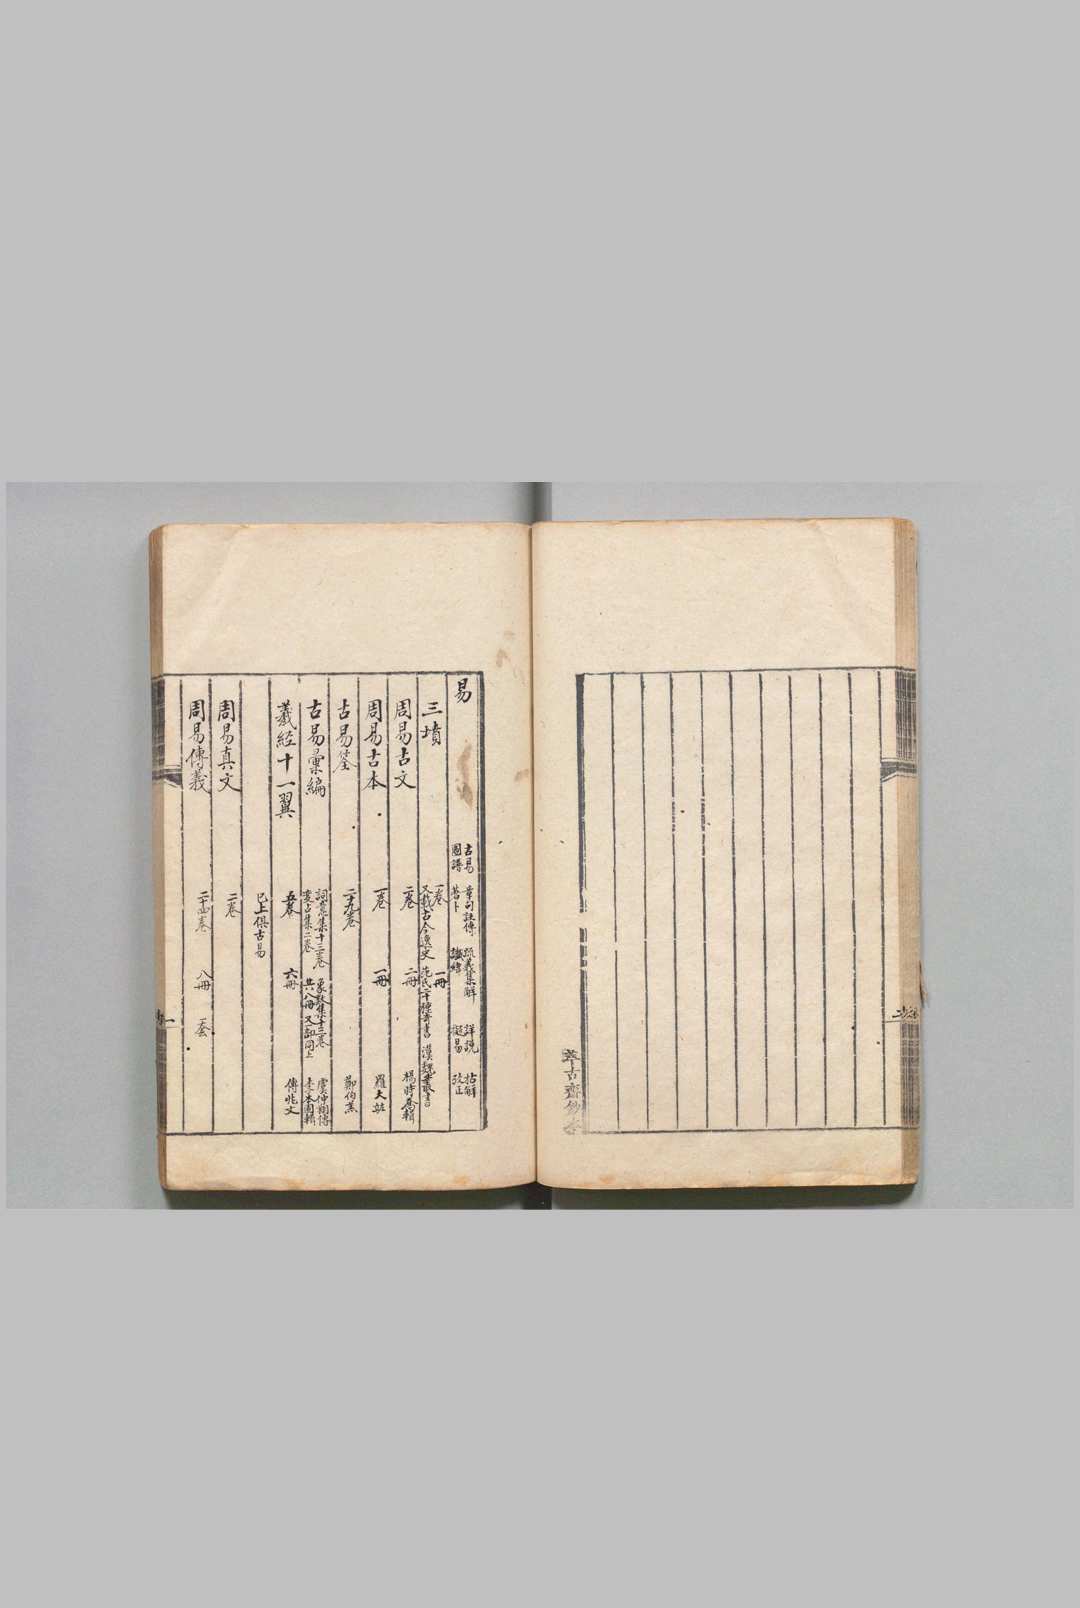 易
古易 章句註傳 疏義集解 詳說 拈解
圖譜 蓍卜 讖緯 擬易 攷正
三墳 一卷 一冊
又載古今逸史 范氏二十種奇書 漢魏叢書
周易古文 二卷 二冊 楊時喬輯
周易古本 一卷 一冊 羅大紘
古易筌 二十九卷 鄧伯羔
古易彙編 詞意集十三卷 象數集十三卷 虞仲翔傳
變占集二卷 共八冊 又 同上 李本固輯
羲經十一翼 五卷 六冊 傅兆文
已上俱古易
周易真文 二卷
周易傳義 二十四卷 八冊 一套
一
萃古齋鈔本